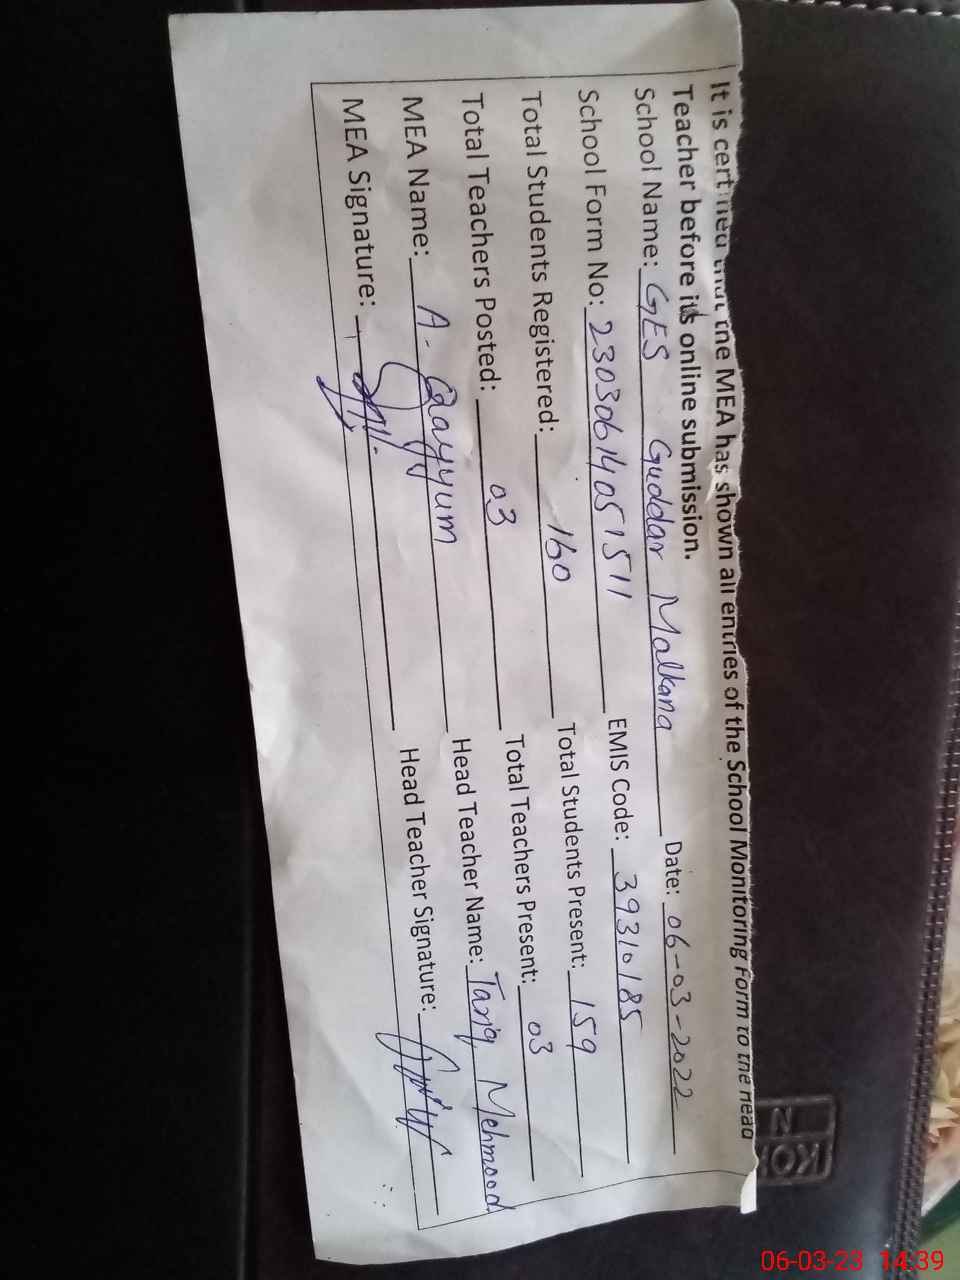 It is certified that the MEA has shown all entries of the School Monitoring Form to the Head
Teacher before its online submission.
School Name: GES Guddar Malkana Date: 06-03-2022
School Form No: 2303061405 1511 EMIS Code: 39310185
Total Students Registered: 160 Total Students Present: 159
Total Teachers Posted: 03 Total Teachers Present: 03
MEA Name: A. Qayyum Head Teacher Name: Tariq Mehmood
MEA Signature: Head Teacher Signature:
06-03-23 14:39